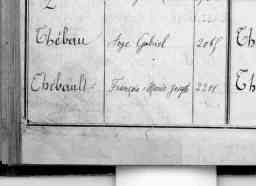 Thébau Ange Gabriel 2065
Thébault François Marie Joseph
Th
Th